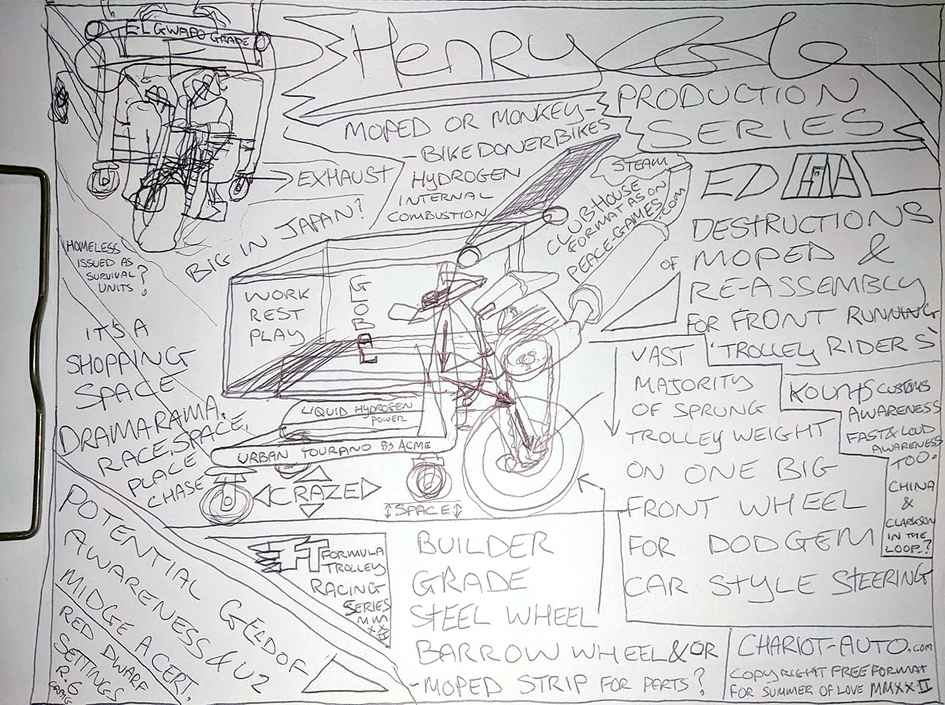 EL GWAPO GRADE
Henry Cole
PRODUCTION
SERIES
MOPED OR MONKEY-
-BIKE DONER BIKES
HYDROGEN
INTERNAL
COMBUSTION
EXHAUST
BIG IN JAPAN?
STEAM
CLUBHOUSE
FORMAT AS ON
PEACE-GAMES
.COM
ED
DESTRUCTIONS
OF MOPED &
RE-ASSEMBLY
FOR FRONT RUNNING
'TROLLEY RIDERS
HOMELESS
ISSUED AS
SURVIVAL
UNITS?
WORK
REST
PLAY
GLOBAL
LIQUID HYDROGEN
POWER
URBAN TOURANO BY ACME
CRAZED
SPACE
IT'S A
SHOPPING
SPACE
DRAMARAMA,
RACE SPACE,
PLACE
CHASE
VAST
MAJORITY
OF SPRUNG
TROLLEY WEIGHT
ON ONE BIG
FRONT WHEEL
FOR DODGEM
CAR STYLE STEERING
CUSTOMS
AWARENESS
FAST & LOUD
AWARENESS
TOO.
CHINA
&
CLARKSON
IN THE
LOOP?
POTENTIAL GELDOF
AWARENESS & U2
MIDGE A CERT.
RED DWARF
SETTINGS
R.6
FT FORMULA
TROLLEY
RACING
SERIES
MM
XX
II
BUILDER
GRADE
STEEL WHEEL
BARROW WHEEL &/OR
-MOPED STRIP FOR PARTS?
CHARIOT-AUTO.com
COPYRIGHT FREE FORMAT
FOR SUMMER OF LOVE MMXXII